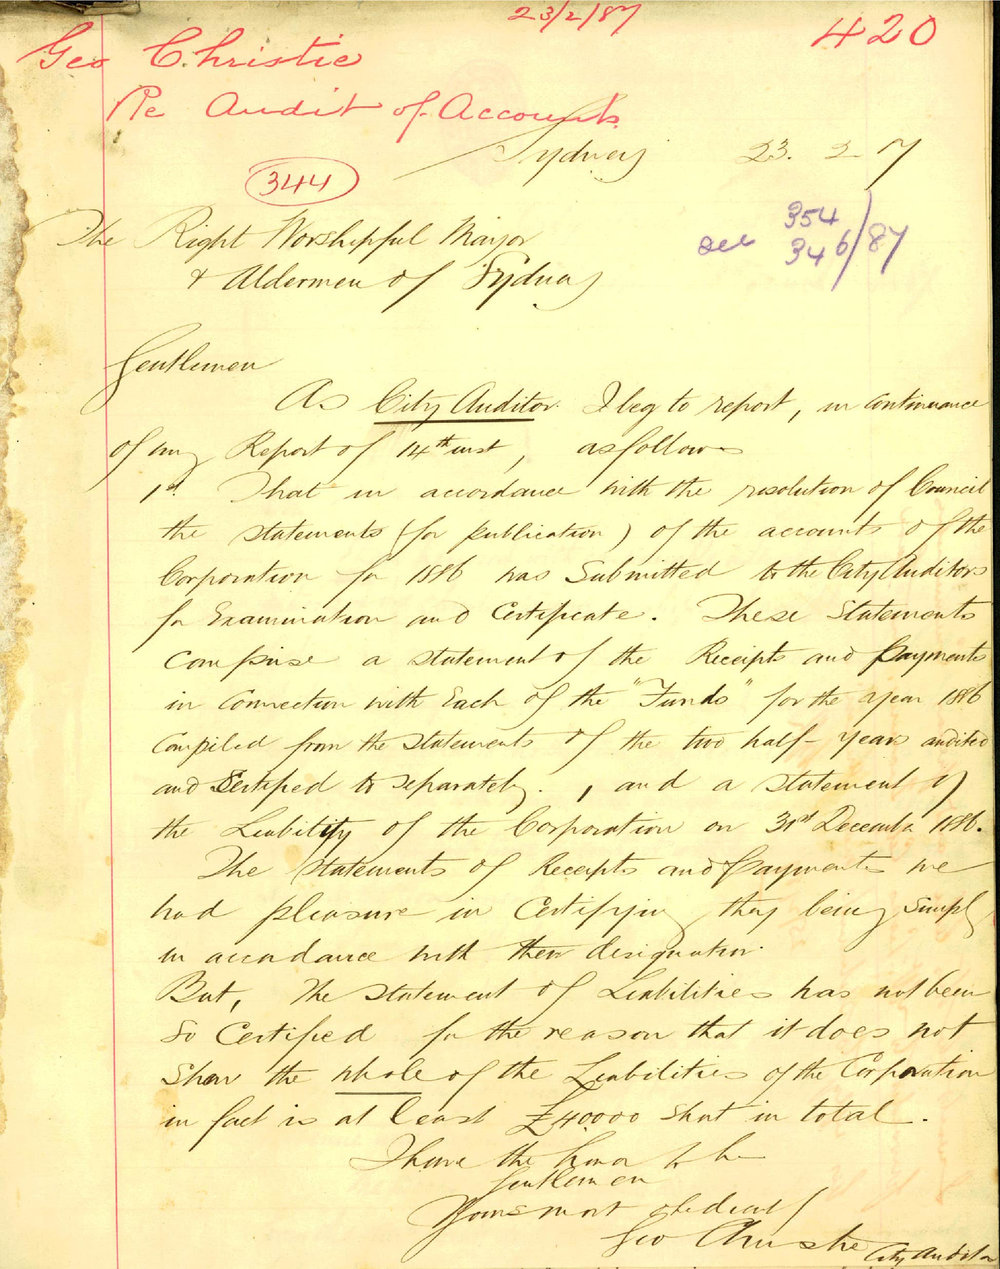 23/2/87
420
Geo Christie
Re Audit of Accounts
Sydney 23. 2 7
344
see 354
346/87
The Right Worshipful Mayor
& Aldermen of Sydney
Gentlemen
As City Auditor I beg to report, in continuance
of my Report of 14th inst, as follows
1st. That in accordance with the resolution of Council
the statements (for publication) of the accounts of the
Corporation for 1886 was Submitted to the City Auditors
for Examination and Certificate. These Statements
Comprise a statement of the Receipts and Payments
in Connection with Each of the "Funds" for the year 1886
Compiled from the statements of the two half-years audited
and Certified to separately. , and a statement of
the Liability of the Corporation on 31st December 1886.
The statements of Receipts and Payments we
had pleasure in Certifying they being simply
in accordance with their designation.
But, the statement of Liabilities has not been
So Certified for the reason that it does not
Show the whole of the Liabilities of the Corporation
in fact is at least £40000 Short in total.
I have the honor to be
Gentlemen
Yours most obedient
Geo Christie City Auditor